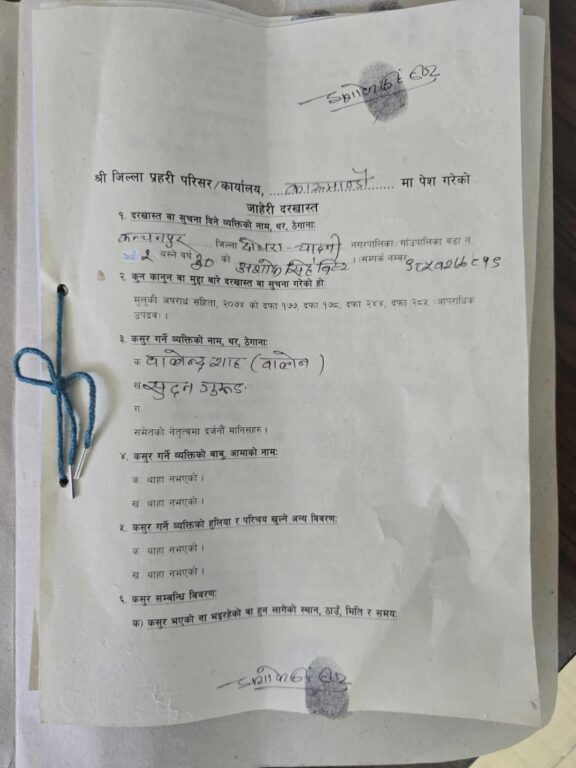 श्री जिल्ला प्रहरी परिसर/कार्यालय, ....काठमाण्डौ...... मा पेश गरेको
जाहेरी दरखास्त
१. दरखास्त वा सूचना दिने व्यक्तिको नाम, थर, ठेगानाः
कन्चनपुर ........ जिल्ला दोधारा - चादनी नगरपालिका/गाउँपालिका वडा न.
2 बस्ने वर्ष ३० को अशोक सिंह (सम्पर्क नम्बर
२. कुन कानुन वा मुद्दा बारे दरखास्त वा सूचना गरेको होः
मुलुकी अपराध संहिता, २०७४ को दफा १७७, दफा १७८, दफा २४४, दफा २८५ (आपराधिक
उपद्रव) ।
३. कसुर गर्ने व्यक्तिको नाम, थर, ठेगानाः
क. वालेन्द्र शाह (वालेन)
ख. सुदन गुरुङ
ग.
समेतको नेतृत्वमा दर्जनौं मानिसहरु ।
४. कसुर गर्ने व्यक्तिको बाबु, आमाको नामः
क. थाहा नभएको ।
ख. थाहा नभएको ।
५. कसुर गर्ने व्यक्तिको हुलिया र परिचय खुल्ने अन्य विवरणः
क. थाहा नभएको ।
ख. थाहा नभएको ।
६. कसुर सम्बन्धि विवरणः
क) कसुर भएको वा भइरहेको वा हुन लागेको स्थान, ठाउँ, मिति र समयः